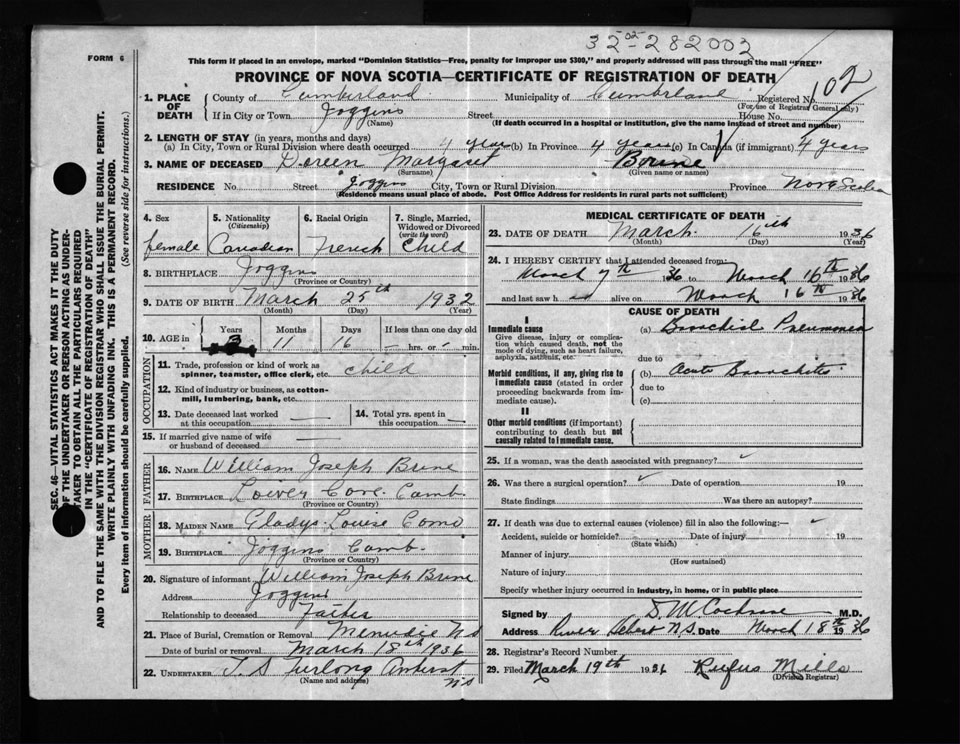 32-02-282002
FORM 6
This form if placed in an envelope, marked "Dominion Statistics—Free, penalty for improper use $300," and properly addressed will pass through the mail "FREE"
PROVINCE OF NOVA SCOTIA—CERTIFICATE OF REGISTRATION OF DEATH
102
SEC. 46—VITAL STATISTICS ACT MAKES IT THE DUTY
OF THE UNDERTAKER OR PERSON ACTING AS UNDER-
TAKER TO OBTAIN ALL THE PARTICULARS REQUIRED
IN THE "CERTIFICATE OF REGISTRATION OF DEATH"
AND TO FILE THE SAME WITH THE DIVISION REGISTRAR WHO SHALL ISSUE THE BURIAL PERMIT.
WRITE PLAINLY WITH UNFADING INK. THIS IS A PERMANENT RECORD.
Every item of information should be carefully supplied. (See reverse side for instructions.)
1. PLACE OF DEATH County of Cumberland Municipality of Cumberland Registered No.
(For use of Registrar General only)
If in City or Town Joggins Street House No.
(Name) (If death occurred in a hospital or institution, give the name instead of street and number)
2. LENGTH OF STAY (in years, months and days)
(a) In City, Town or Rural Division where death occurred 4 years (b) In Province 4 years (c) In Canada (if immigrant) 4 years
3. NAME OF DECEASED Doreen Margaret Bourne
(Surname) (Given name or names)
RESIDENCE No. Street Joggins City, Town or Rural Division Province Nova Scotia
(Residence means usual place of abode. Post Office Address for residents in rural parts not sufficient)
4. Sex 5. Nationality 6. Racial Origin 7. Single, Married,
(Citizenship) Widowed or Divorced
(write the word)
female Canadian French Child
8. BIRTHPLACE Joggins
(Province or Country)
9. DATE OF BIRTH March 25th 1932
(Month) (Day) (Year)
10. AGE in Years Months Days If less than one day old
3 11 16 hrs. or min.
OCCUPATION
11. Trade, profession or kind of work as
spinner, teamster, office clerk, etc. child
12. Kind of industry or business, as cotton-
mill, lumbering, bank, etc.
13. Date deceased last worked 14. Total yrs. spent in
at this occupation this occupation
15. If married give name of wife
or husband of deceased
FATHER
16. NAME William Joseph Brine
17. BIRTHPLACE Lower Cove Cumb.
(Province or Country)
MOTHER
18. MAIDEN NAME Gladys Louise Como
19. BIRTHPLACE Joggins Cumb.
(Province or Country)
20. Signature of informant William Joseph Brine
Address Joggins
Relationship to deceased Father
21. Place of Burial, Cremation or Removal Menudie N.S
Date of burial or removal March 18th 1936
22. UNDERTAKER T. S Furlong Amherst
(Name and address) N.S
MEDICAL CERTIFICATE OF DEATH
23. DATE OF DEATH March 16th 1936
(Month) (Day) (Year)
24. I HEREBY CERTIFY that I attended deceased from:
March 7th 1936 to March 16th 1936
and last saw h alive on March 16th 1936
CAUSE OF DEATH
I
Immediate cause
Give disease, injury or complica-
tion which caused death, not the
mode of dying, such as heart failure,
asphyxia, asthenia, etc.
(a) Bronchial Pneumonia
due to
Morbid conditions, if any, giving rise to
immediate cause (stated in order
proceeding backwards from im-
mediate cause).
(b) Acute Bronchitis
due to
(c)
II
Other morbid conditions (if important)
contributing to death but not
causally related to immediate cause.
25. If a woman, was the death associated with pregnancy?
26. Was there a surgical operation? Date of operation 19
State findings Was there an autopsy?
27. If death was due to external causes (violence) fill in also the following:—
Accident, suicide or homicide? Date of injury 19
(State which)
Manner of injury
(How sustained)
Nature of injury
Specify whether injury occurred in industry, in home, or in public place
Signed by D. M Cochrane M.D.
Address River Hebert N.S. Date March 18th 1936
28. Registrar's Record Number
29. Filed March 19th 1936 Rufus Mills
(Division Registrar)